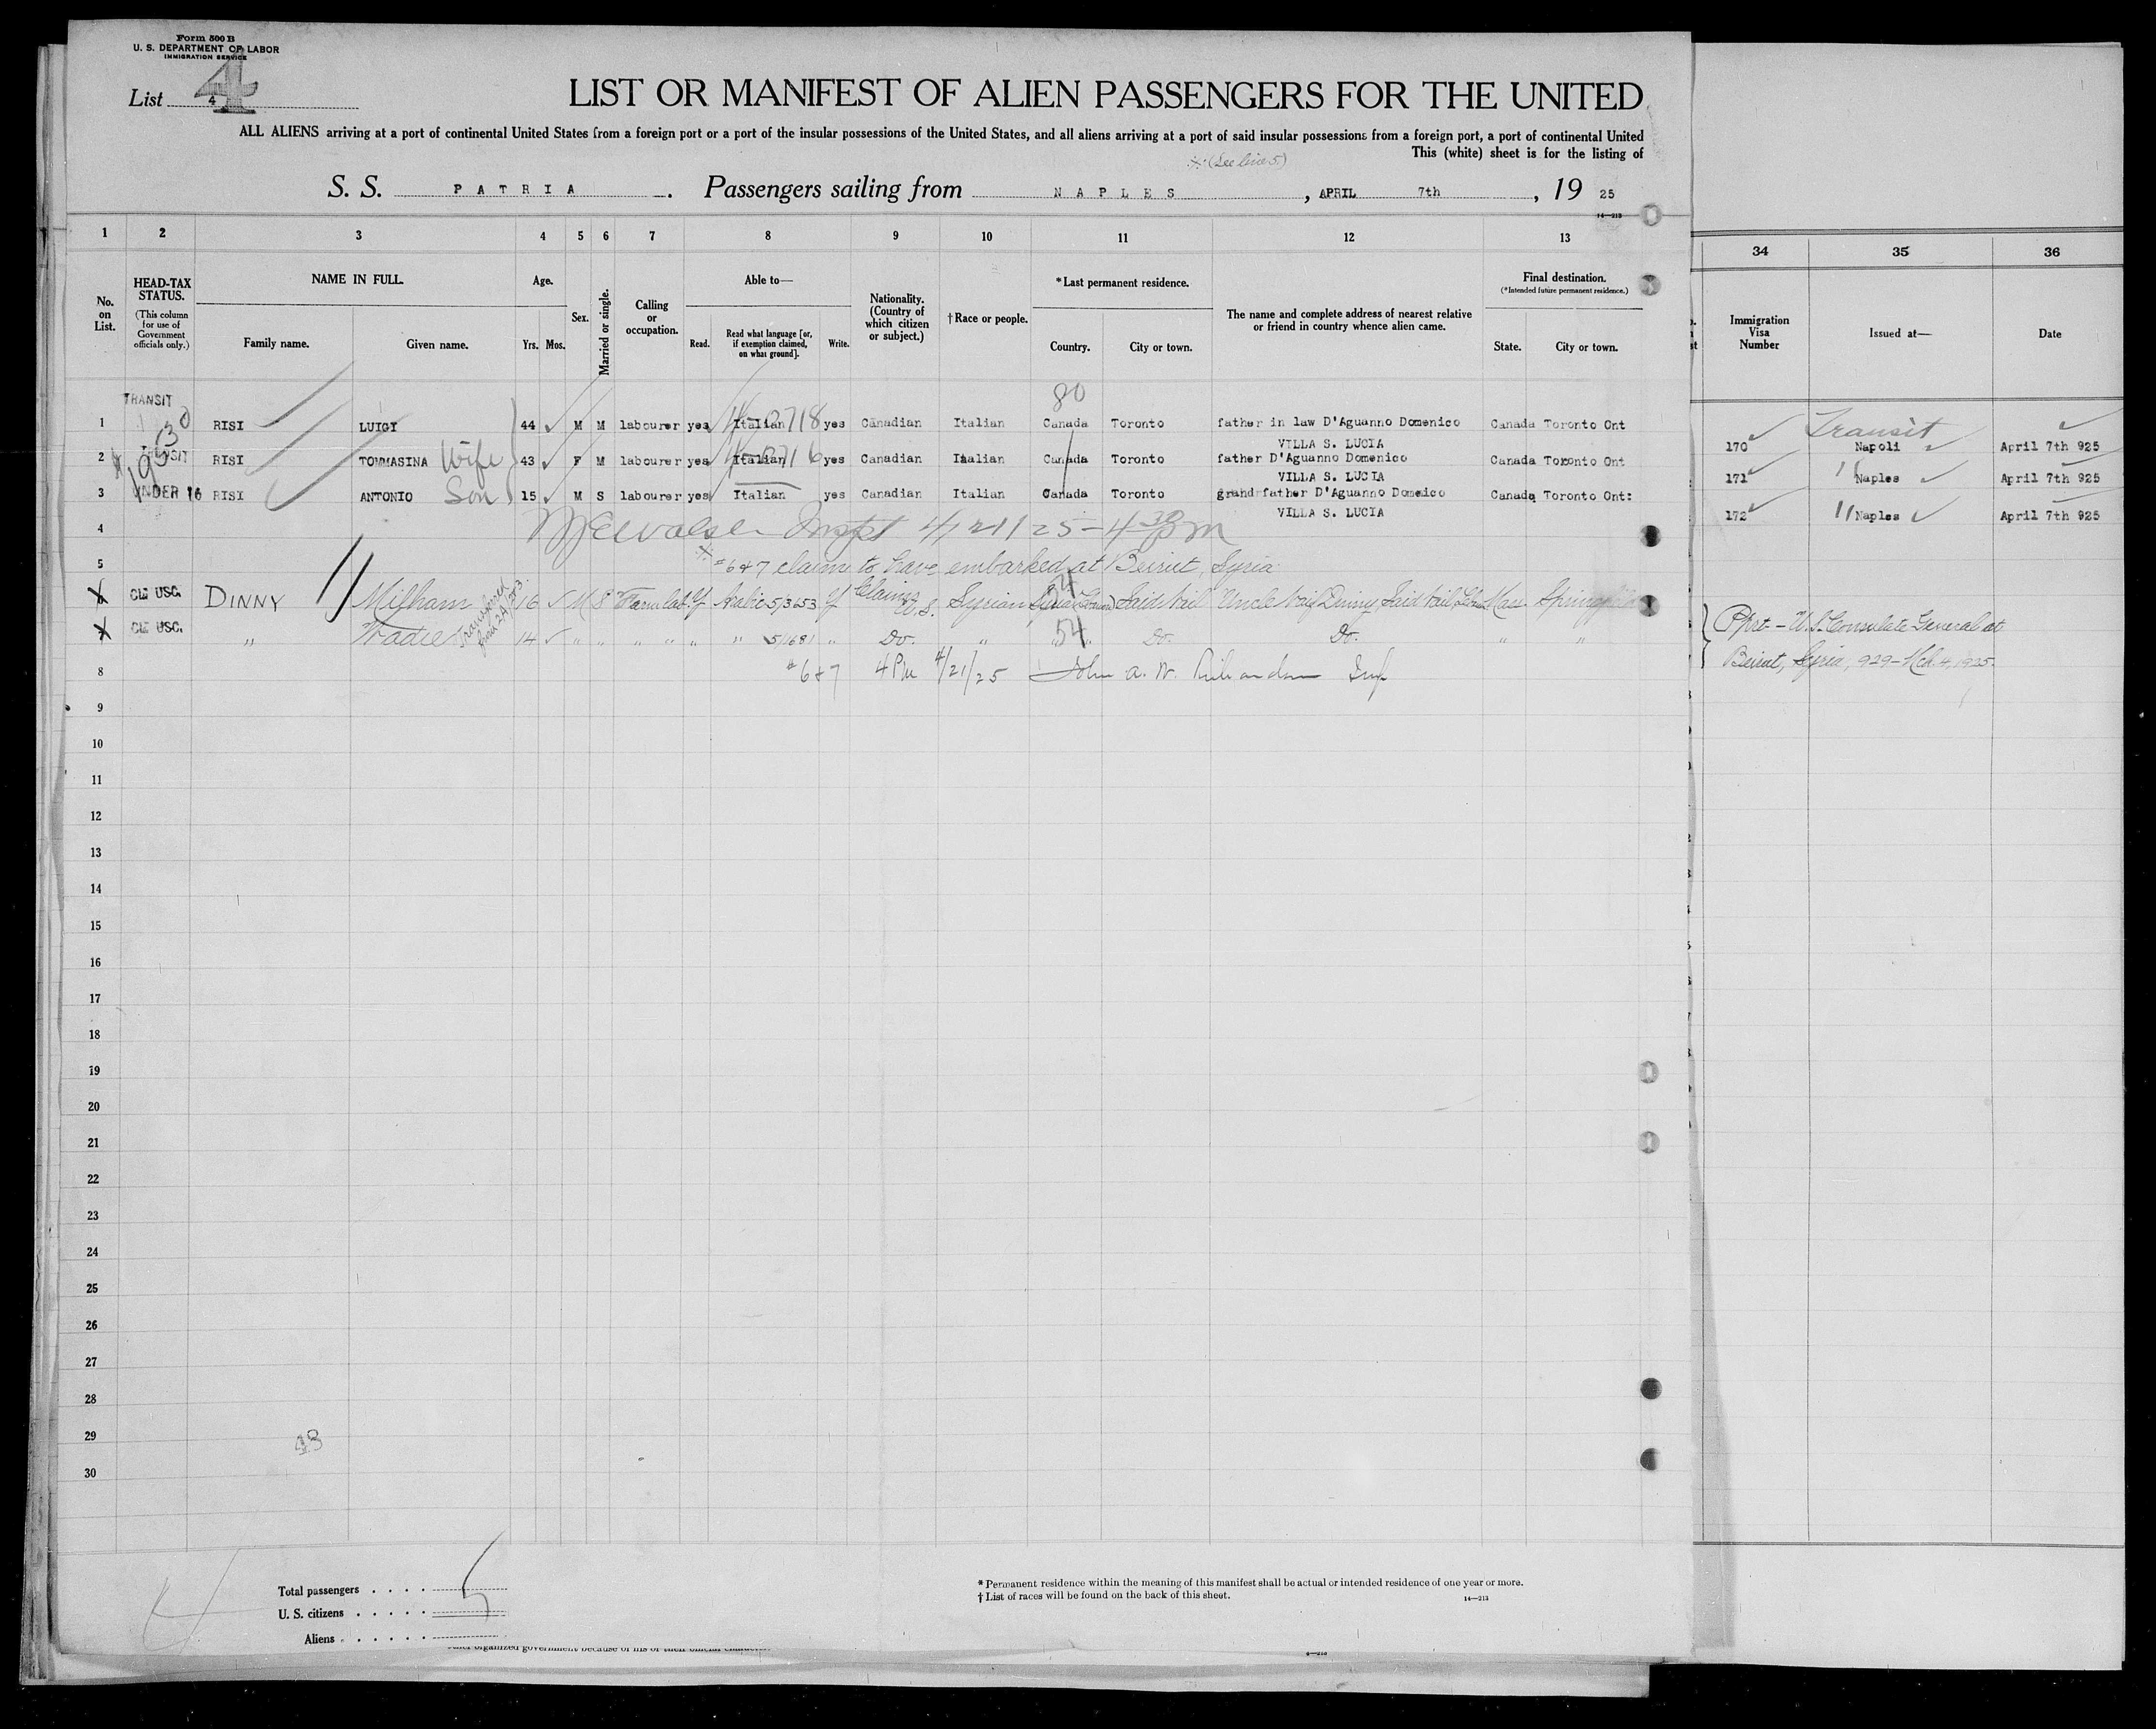 Form 500 B
U. S. DEPARTMENT OF LABOR
IMMIGRATION SERVICE
List 4
4
LIST OR MANIFEST OF ALIEN PASSENGERS FOR THE UNITED
ALL ALIENS arriving at a port of continental United States from a foreign port or a port of the insular possessions of the United States, and all aliens arriving at a port of said insular possessions from a foreign port, a port of continental United
This (white) sheet is for the listing of
(See line 5)
S. S. PATRIA. Passengers sailing from NAPLES, APRIL 7th, 19 25
14—213
1 2 3 4 5 6 7 8 9 10 11 12 13 34 35 36
No. on List.
HEAD-TAX STATUS.
(This column for use of Government officials only.)
NAME IN FULL.
Family name. Given name.
Age.
Yrs. Mos.
Sex.
Married or single.
Calling or occupation.
Able to—
Read. Read what language [or, if exemption claimed, on what ground]. Write.
Nationality. (Country of which citizen or subject.)
†Race or people.
*Last permanent residence.
Country. City or town.
The name and complete address of nearest relative or friend in country whence alien came.
Final destination.
(*Intended future permanent residence.)
State. City or town.
Immigration Visa Number
Issued at—
Date
80
TRANSIT
1 RISI LUIGI 44 M M labourer yes Italian yes Canadian Italian Canada Toronto father in law D'Aguanno Domenico Canada Toronto Ont
VILLA S. LUCIA
170 Transit Napoli April 7th 925
TRANSIT
2 RISI TOMMASINA Wife 43 F M labourer yes Italian yes Canadian Italian Canada Toronto father D'Aguanno Domenico Canada Toronto Ont
VILLA S. LUCIA
171 " Naples April 7th 925
UNDER 16
3 RISI ANTONIO Son 15 M S labourer yes Italian yes Canadian Italian Canada Toronto grandfather D'Aguanno Domenico Canada Toronto Ont:
VILLA S. LUCIA
172 " Naples April 7th 925
4 Inspt 4/21/25 - 4 30 PM
5 #6&7 claim to have embarked at Beirut, Syria
CLE USC. DINNY Milham 16 M S Farm lab. Y Arabic 5/3653 Y Claims U.S. Syrian 54 Uncle Mass Springfield
CLE USC. " 14 " " " " " " 5/1681 " Do. " 54 Do. Do. " "
Pprt - U.S. Consulate General at
Beirut, Syria, 929 - Mch. 4, 1925.
8 #6&7 4 PM 4/21/25 John A. W. Richardson Insp
9
10
11
12
13
14
15
16
17
18
19
20
21
22
23
24
25
26
27
28
29
48
30
Total passengers 5
U. S. citizens
Aliens
* Permanent residence within the meaning of this manifest shall be actual or intended residence of one year or more.
† List of races will be found on the back of this sheet.
14—213